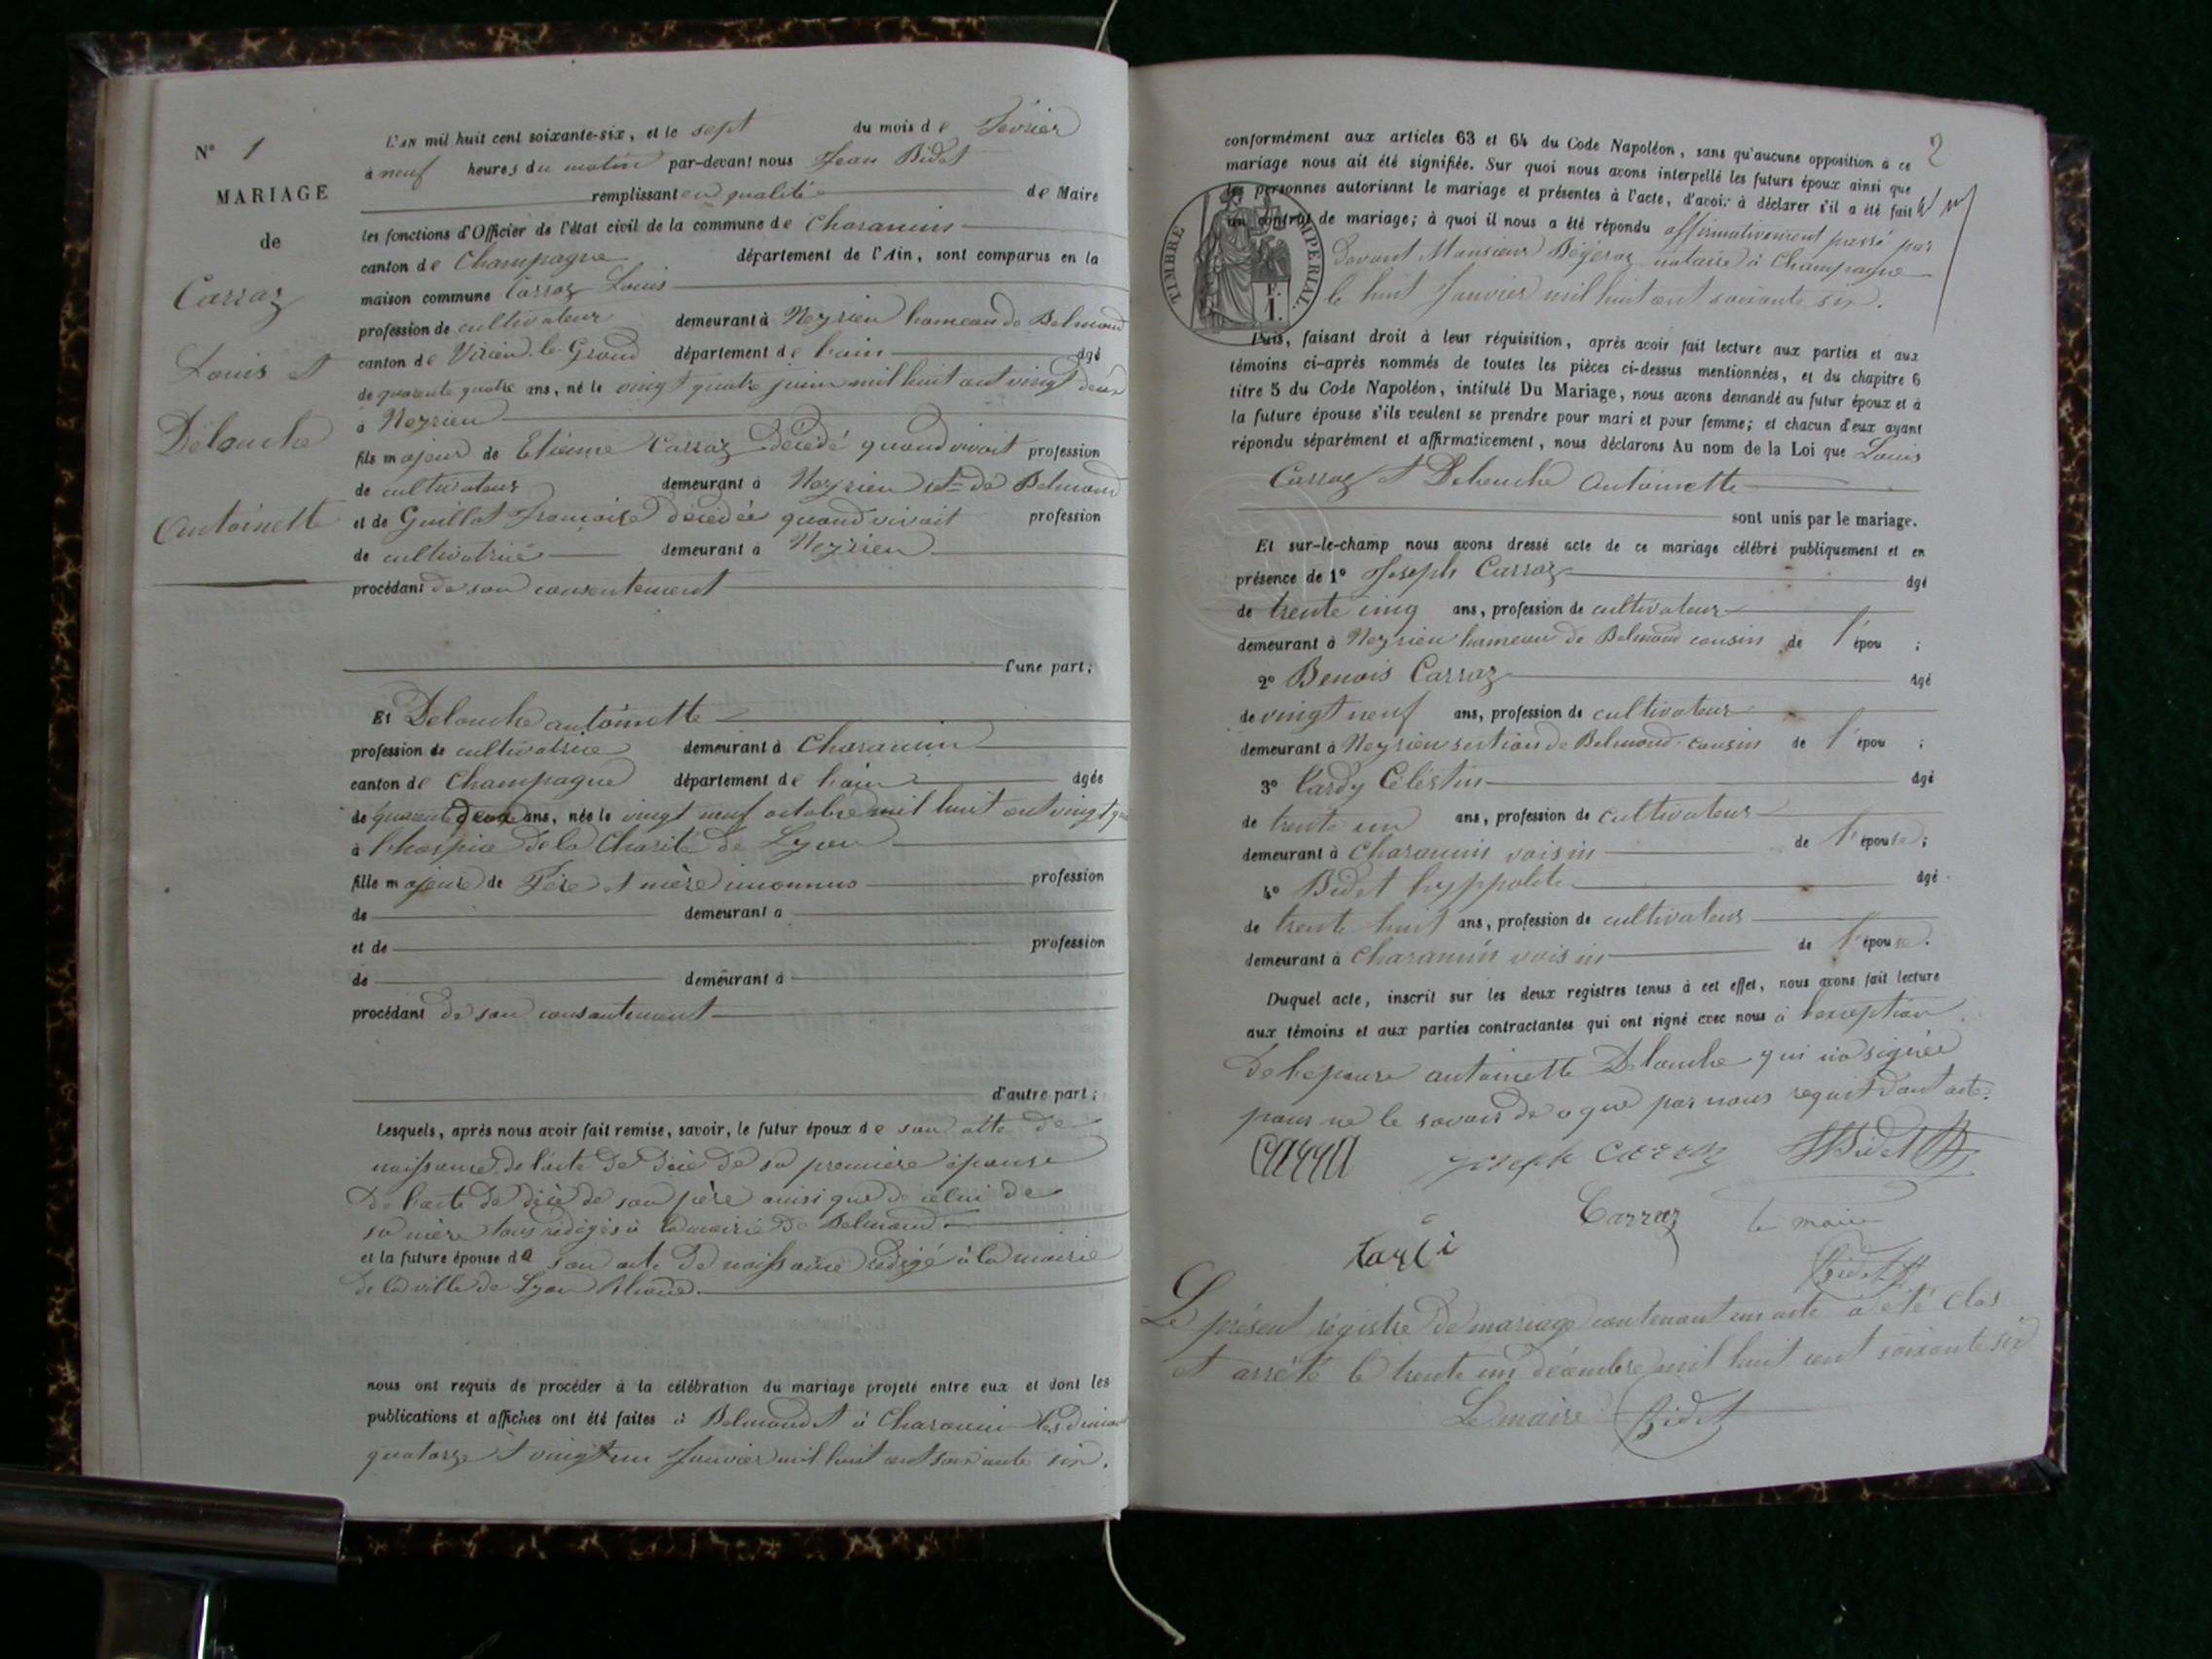 N° 1
MARIAGE
de
Carraz
Louis et
Delouche
Antoinette
L'AN mil huit cent soixante-six, et le sept du mois de février
à neuf heures du matin par-devant nous Jean Bidet
remplissant en qualité de Maire
les fonctions d'Officier de l'état civil de la commune de Charancin
canton de Champagne département de l'Ain, sont comparus en la
maison commune Carraz Louis
profession de cultivateur demeurant à Neyrieu hameau de Belmond
canton de Virieu le Grand département de l'ain âgé
de quarante quatre ans, né le vingt quatre juin mil huit cent vingt deux
à Neyrieu
fils majeur de Etienne Carraz décédé quand vivait profession
de cultivateur demeurant à Neyrieu son de Belmond
et de Guillot françoise décédée quand vivait profession
de cultivatrice demeurant à Neyrieu
procédant de son consentement
l'une part;
Et Delouche antoinette
profession de cultivatrice demeurant à Charancin
canton de Champagne département de l'ain âgée
de quarante deux ans, née le vingt neuf octobre mil huit cent vingt
à l'hospice de la Charité de Lyon
fille majeure de Père et mère inconnus profession
de demeurant à
et de profession
de demeurant à
procédant de son consantement
d'autre part;
Lesquels, après nous avoir fait remise, savoir, le futur époux de son atte de
naissance de l'acte de décé de sa première épouse
de l'acte de décè de son père ainsi que de celui de
sa mère tous rédigés à la mairie de Belmond
et la future épouse de son acte de naissance rédigé à la mairie
de la ville de Lyon Rhone.
nous ont requis de procéder à la célébration du mariage projeté entre eux et dont les
publications et affiches ont été faites à Belmond et à Charancin les
quatorze et vingt un Janvier mil huit cent soixante six.
2
conformément aux articles 63 et 64 du Code Napoléon, sans qu'aucune opposition à ce
mariage nous ait été signifiée. Sur quoi nous avons interpellé les futurs époux ainsi que
les personnes autorisant le mariage et présentes à l'acte, d'avoir à déclarer s'il a été fait
un contrat de mariage; à quoi il nous a été répondu affirmativement passé par
devant Monsieur notaire à Champagne
le huit Janvier mil huit cent soixante six.
TIMBRE IMPERIAL
F. 1.
Puis, faisant droit à leur réquisition, après avoir fait lecture aux parties et aux
témoins ci-après nommés de toutes les pièces ci-dessus mentionnées, et du chapitre 6
titre 5 du Code Napoléon, intitulé Du Mariage, nous avons demandé au futur époux et à
la future épouse s'ils veulent se prendre pour mari et pour femme; et chacun d'eux ayant
répondu séparément et affirmativement, nous déclarons Au nom de la Loi que Louis
Carraz et Delouche Antoinette
sont unis par le mariage.
Et sur-le-champ nous avons dressé acte de ce mariage célébré publiquement et en
présence de 1° Joseph Carraz âgé
de trente cinq ans, profession de cultivateur
demeurant à Neyrieu hameau de Belmond cousin de l'épou ;
2° Benois Carraz âgé
de vingt neuf ans, profession de cultivateur
demeurant à Neyrieu section de Belmond cousin de l'épou ;
3° Tardy Célestin âgé
de trente un ans, profession de cultivateur
demeurant à Charancin voisin de l'épouse;
4° Bidet hyppolite âgé
de trente huit ans, profession de cultivateur
demeurant à Charancin voisin de l'épouse.
Duquel acte, inscrit sur les deux registres tenus à cet effet, nous avons fait lecture
aux témoins et aux parties contractantes qui ont signé avec nous à l'exception
de l'epouse antoinette Delouche qui n'a signée
pour ne le savoir de ce que par nous requit dont acte.
Joseph Carraz Bidet
Carraz le maire
Tardi
Bidet
Le présent régistre de mariage contenant un acte à été clos
et arrêté le trente un décembre mil huit cent soixante six
Le maire Bidet